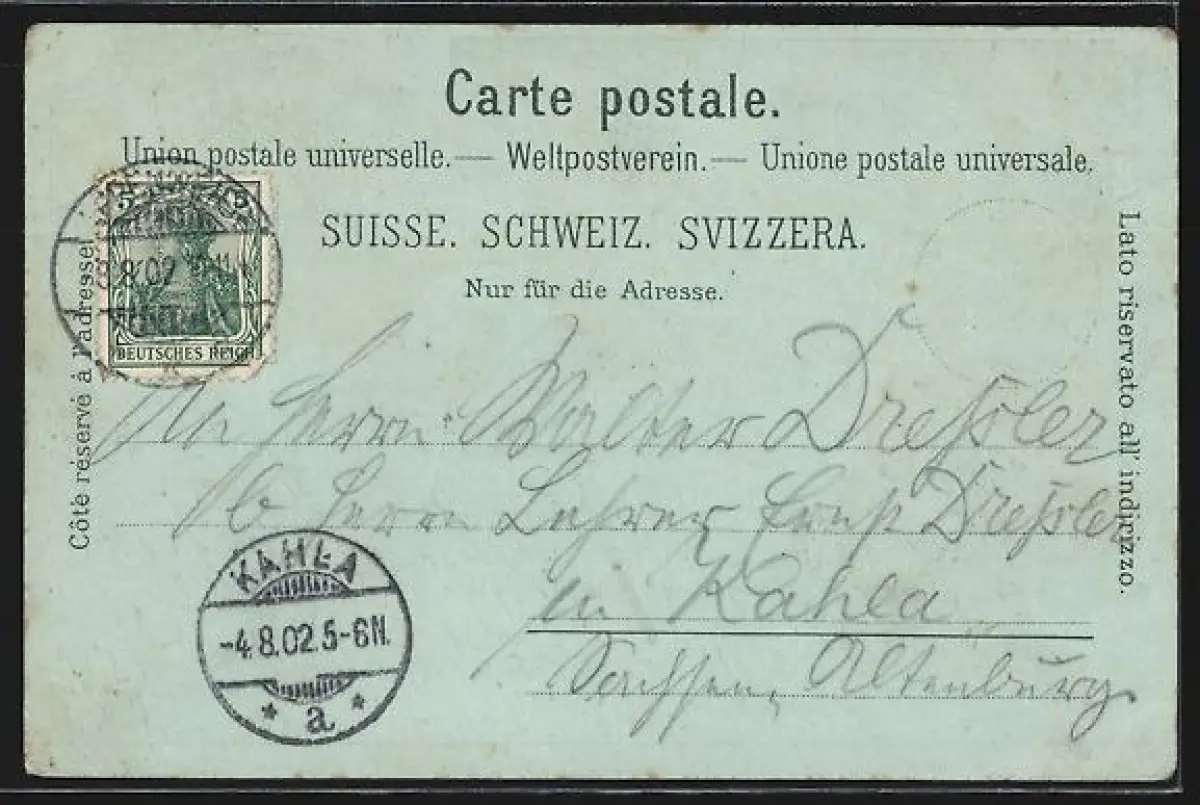 Carte postale.
Union postale universelle. — Weltpostverein. — Unione postale universale.
SUISSE. SCHWEIZ. SVIZZERA.
Nur für die Adresse.
Côté réservé à l'adresse
Lato riservato all' indirizzo.
5 5
8.02
DEUTSCHES REICH
Herrn Walter Dreßler
b Herrn Lehrer Ernst Dreßler
in Kahla
Sachsen, Altenburg
KAHLA
-4.8.02.5-6N.
* a *